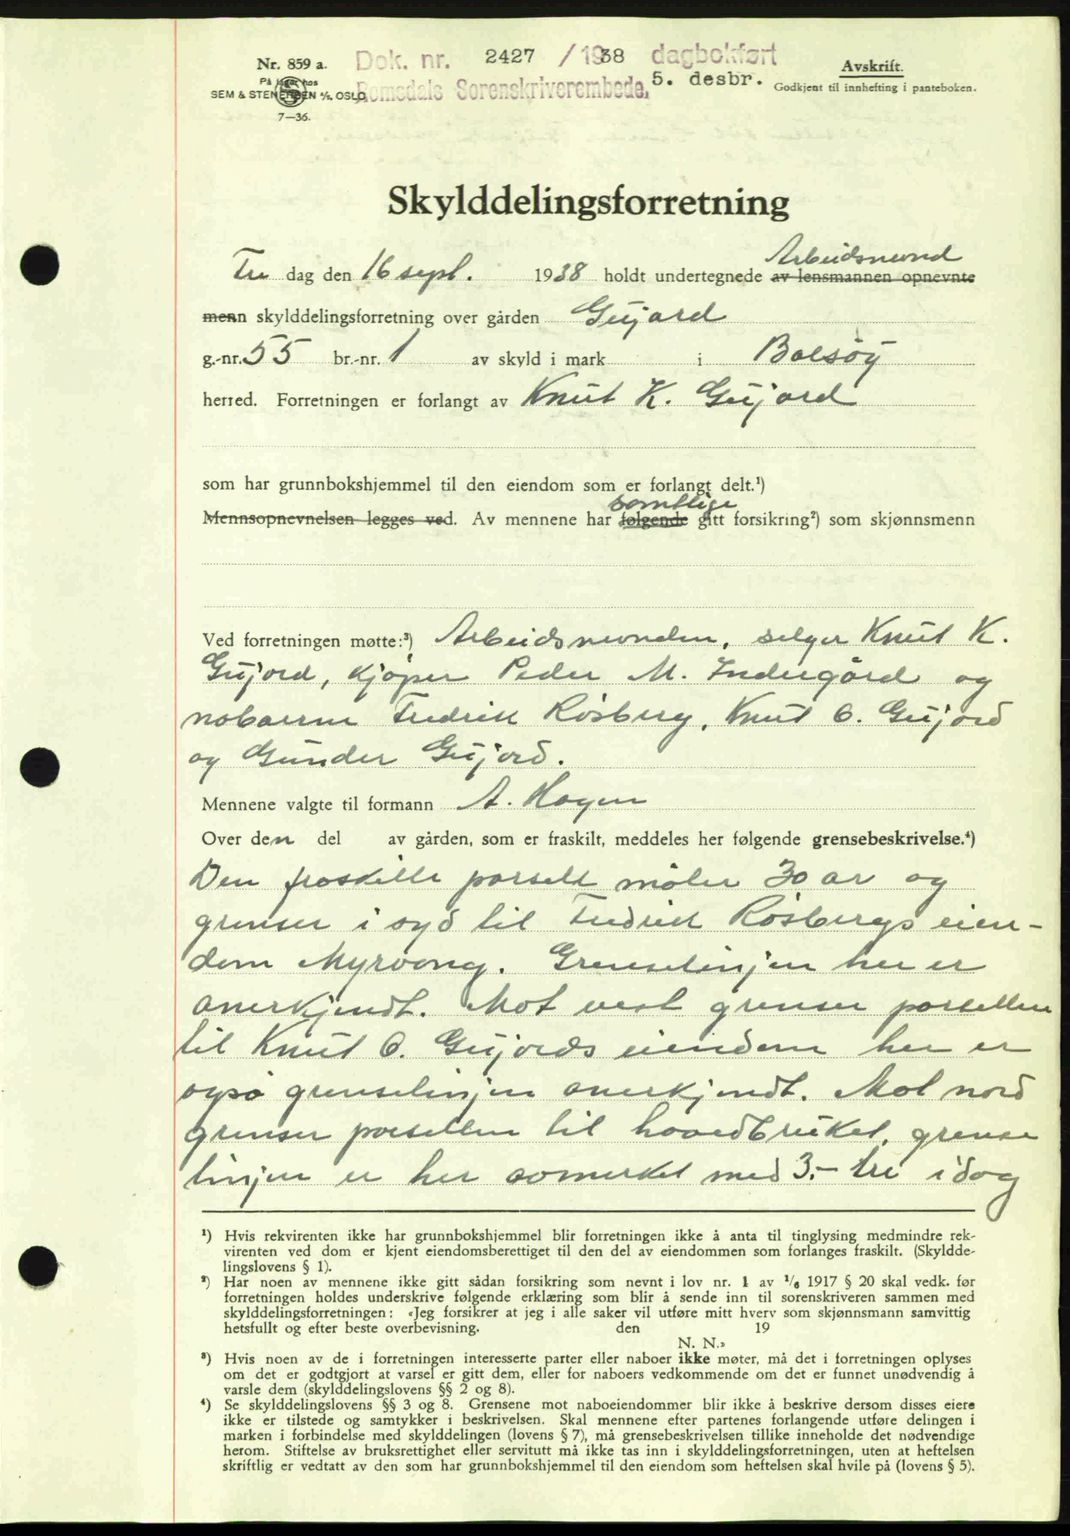 Nr. 859 a.
På lager hos
SEM & STENERSEN A/S, OSLO
7—36.
Dok. nr. 2427 / 1938 dagbokført
Romsdals Sorenskriverembede, 5. desbr.
Avskrift.
Godkjent til innhefting i panteboken.
Skylddelingsforretning
Fre dag den 16 sept. 1938 holdt undertegnede av lensmannen opnevnte Arbeidsnevnd
menn skylddelingsforretning over gården Gujord
g.-nr. 55 br.-nr. 1 av skyld i mark i Bolsöy
herred. Forretningen er forlangt av Knut K. Gujord
som har grunnbokshjemmel til den eiendom som er forlangt delt.¹)
Mennsopnevnelsen legges ved. Av mennene har følgende samtlige gitt forsikring²) som skjønnsmenn
Ved forretningen møtte:³) Arbeidsnevnden, selger Knut K.
Gujord, kjøper Peder M. Indergård og
naboerne Fredrik Rösberg, Knut O. Gujord
og Gunder Gujord.
Mennene valgte til formann A. Hagen
Over den del av gården, som er fraskilt, meddeles her følgende grensebeskrivelse.⁴)
Den fraskilte parsell måler 30 ar og
grenser i syd til Fredrik Rösbergs eien-
dom Myrvang. Grenselinjen her er
anerkjendt. Mot vest grenser parsellen
til Knut O. Gujords eiendom her er
også grenselinjen anerkjendt. Mot nord
grenser parsellen til hovedbruket, grense
linjen er her avmerket med 3.- tre idag
¹) Hvis rekvirenten ikke har grunnbokshjemmel blir forretningen ikke å anta til tinglysing medmindre rek-
virenten ved dom er kjent eiendomsberettiget til den del av eiendommen som forlanges fraskilt. (Skyldde-
lingslovens § 1).
²) Har noen av mennene ikke gitt sådan forsikring som nevnt i lov nr. 1 av 1/6 1917 § 20 skal vedk. før
forretningen holdes underskrive følgende erklæring som blir å sende inn til sorenskriveren sammen med
skylddelingsforretningen: «Jeg forsikrer at jeg i alle saker vil utføre mitt hverv som skjønnsmann samvittig
hetsfullt og efter beste overbevisning. den 19
N. N.»
³) Hvis noen av de i forretningen interesserte parter eller naboer ikke møter, må det i forretningen oplyses
om det er godtgjort at varsel er gitt dem, eller for naboers vedkommende om det er funnet unødvendig å
varsle dem (skylddelingslovens §§ 2 og 8).
⁴) Se skylddelingslovens §§ 3 og 8. Grensene mot naboeiendommer blir ikke å beskrive dersom disses eiere
ikke er tilstede og samtykker i beskrivelsen. Skal mennene efter partenes forlangende utføre delingen i
marken i forbindelse med skylddelingen (lovens § 7), må grensebeskrivelsen tillike inneholde det nødvendige
herom. Stiftelse av bruksrettighet eller servitutt må ikke tas inn i skylddelingsforretningen, uten at heftelsen
skriftlig er vedtatt av den som har grunnbokshjemmel til den eiendom som heftelsen skal hvile på (lovens § 5).